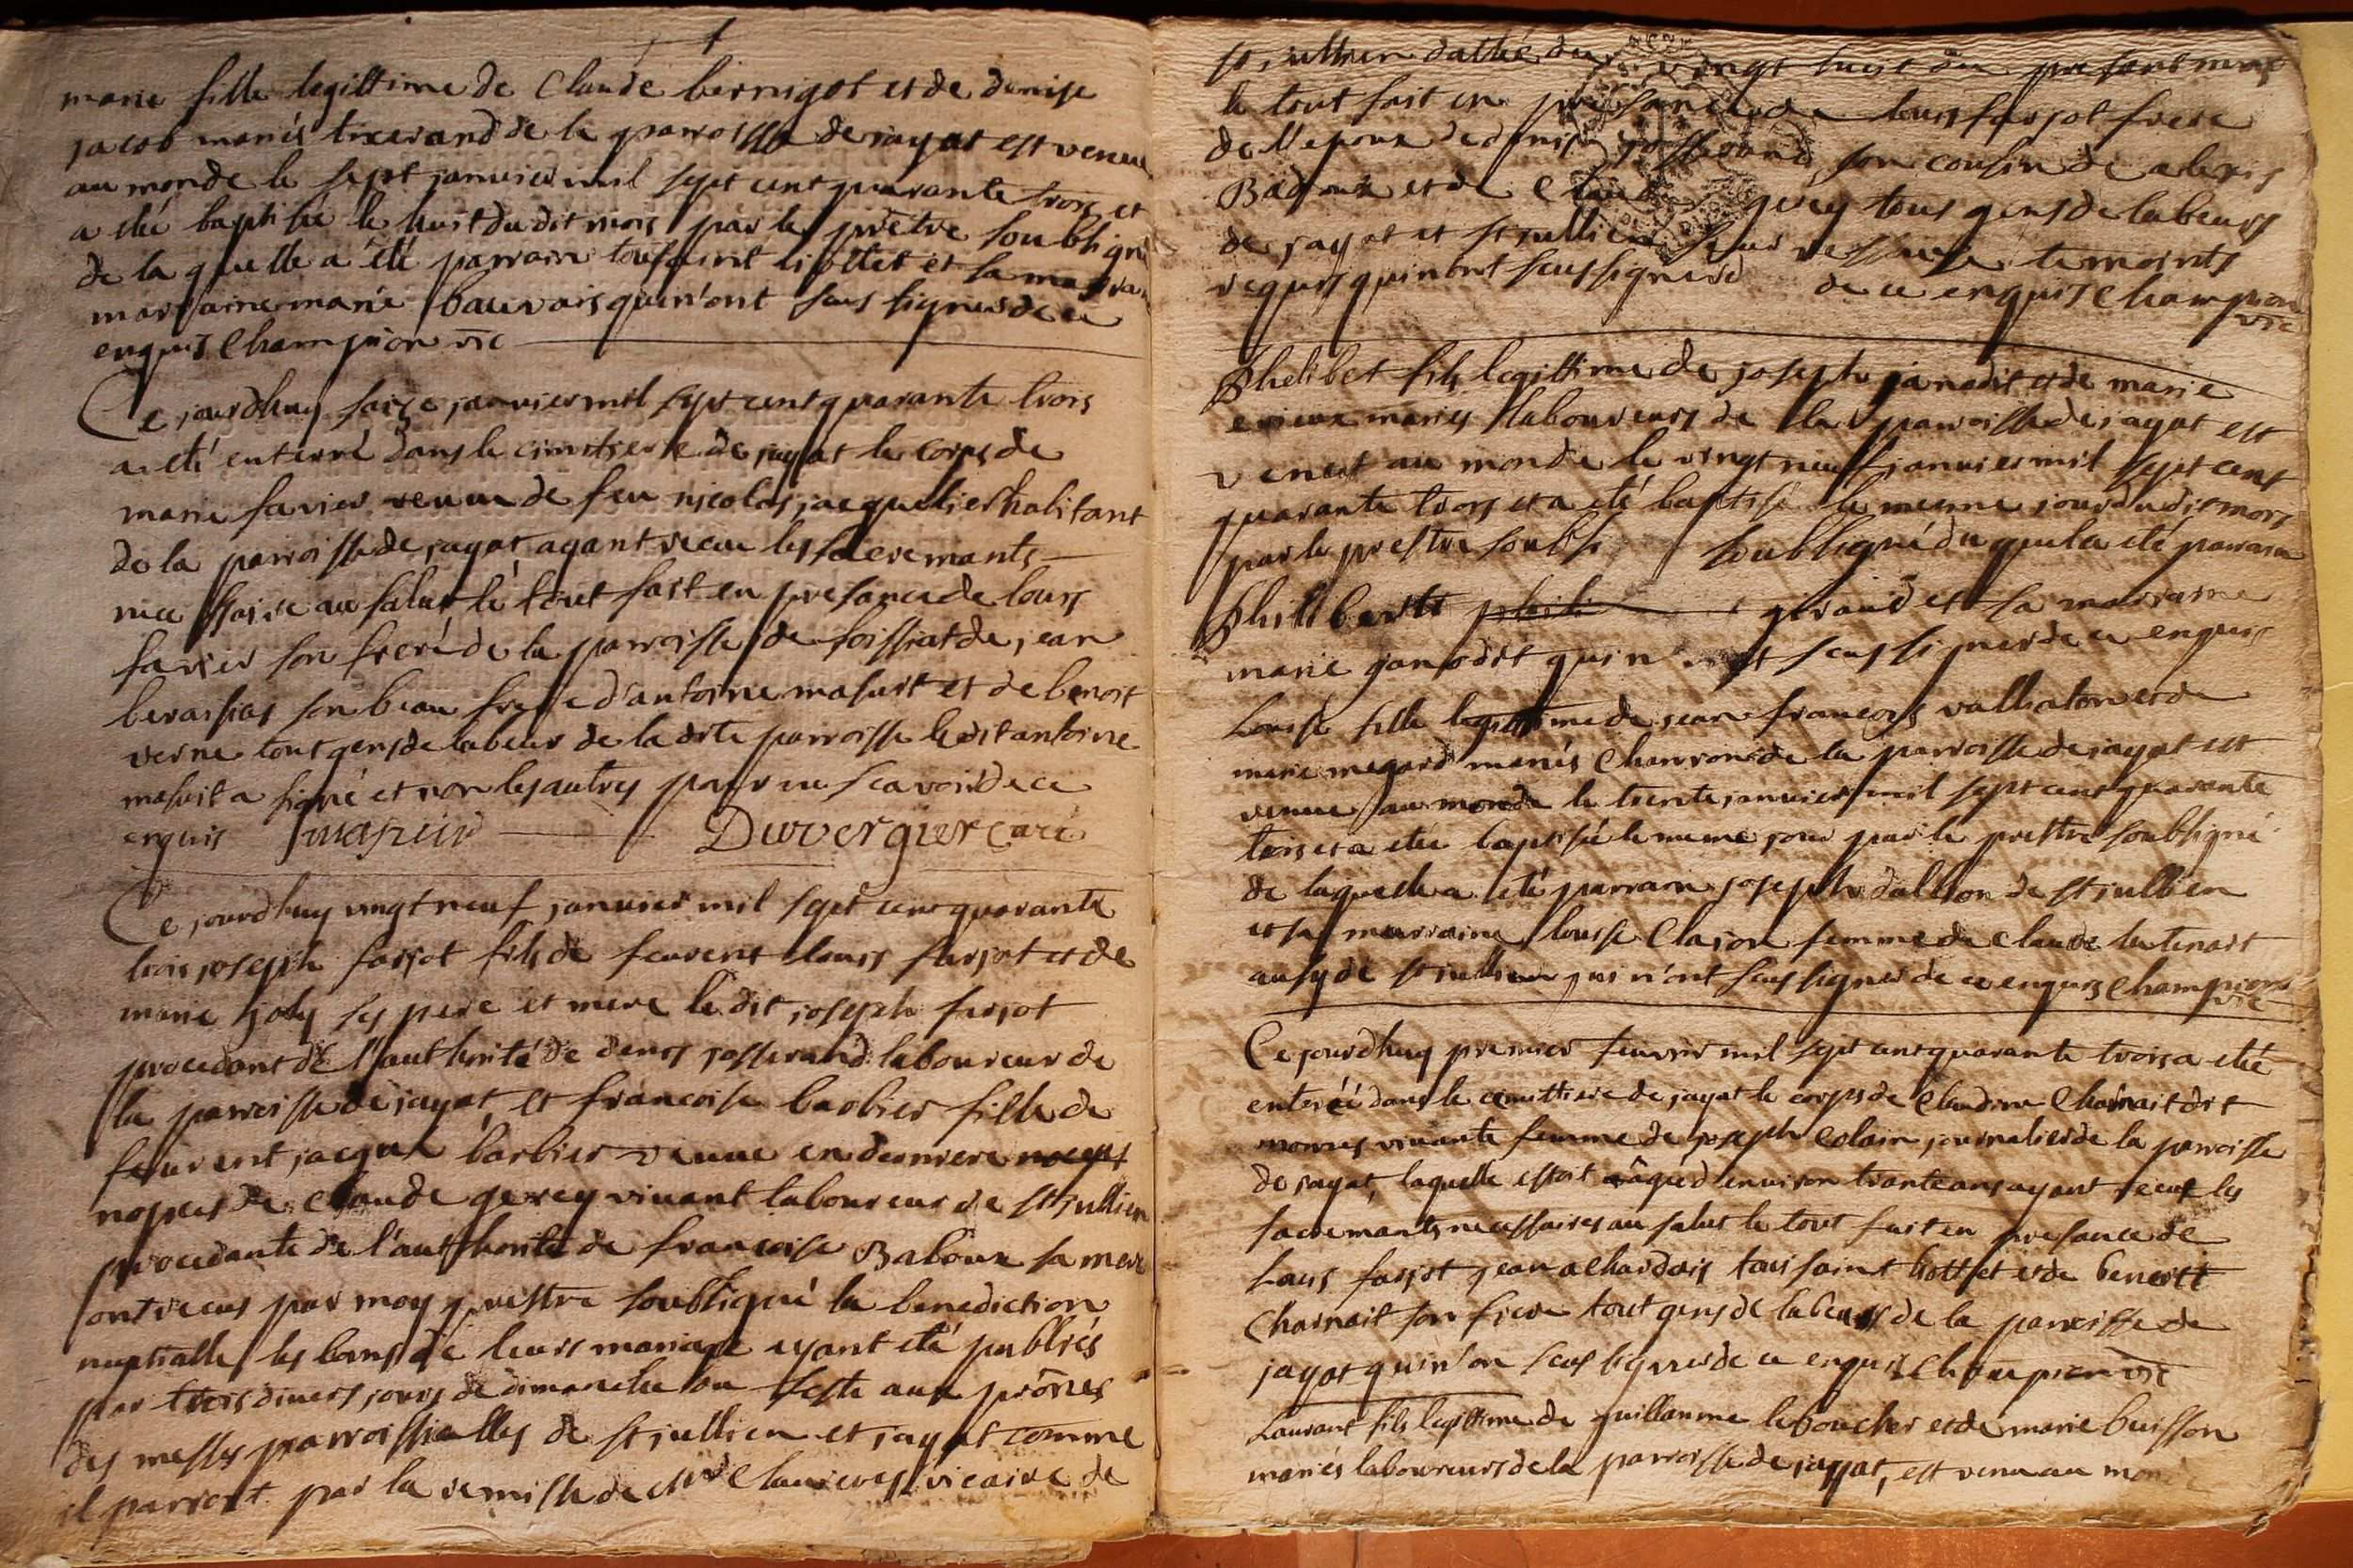 marie fille legittime de Claude bernigot et de denise
jacob mariés tixerand de la parroisse de jayat est venue
au monde le sept janvier mil sept cent quarante trois et
a eté baptisée le huit du dit mois par le prêtre soubsigné
de la quelle a été parrain toussaint liottet et sa marraine
marraine marie bauvais quin'ont sceus signer de ce
enquis Champion vic
Ce jourdhuy saize janvier mil sept cent quarante trois
a eté enterré dans le cimetiere de jayat le corps de
marie favier veuve de feu nicolas jacquelier habitant
de la parroisse de jayat ayant receu les sacremants
necessaire au salut le tout fait en presance de louis
favier son frere de la parroisse de foissiat de jean
son beau frere d'antoine masuit et de benoit
verne tout gens de labeur de la dite parroisse ledit antoine
masuit a signé et non les autres pour ne scavoir de ce
enquis Duvergier curé
Ce jourdhuy vingt neuf janvier mil sept cent quarante
trois joseph farjot fils de feurent louis farjot et de
marie joly ses pere et mere le dit joseph farjot
procedant de l'authorité de denis josserand laboureur de
la parroisse de jayat, et francoise barbier fille de
feurent jacque barbier veuve en derniere
nopces de Claude gerey vivant laboureur de st jullien
procedante de l'authorité de francoise Baboux sa mere
ont receus par moy prestre soubsigné la benediction
nuptialle les bans de leurs mariage ayant eté publiés
par trois divers jours de dimanche ou feste aux prônes
des messes parroissialles de st jullien et jayat comme
il parroit par la remisse de mr vicaire de
st jullien dattée du vingt huit du presant mois
le tout fait en presance de louis farjot frere
de l'epoux de denis josserand son cousin de alexis
Badoux et de Claude gerey tous gens de labeurs
de jayat et st jullien temoints
requis quinont sceus signer de ce enquis Champion
vic
Phelibet fils legittime de joseph janodit et de marie
mariés laboureurs de la parroisse de jayat est
venut au monde le vingt neuf janvier mil sept cent
quarante trois et a eté baptisé le meme jour du dit mois
par le prestre soubsi soubsigné du quel a eté parrain
Philibertt giraud et sa marraine
marie janodit quin'ont sceus signer de ce enquis
Louise fille legittime de jean francois valliaton et de
marie megard mariés Charron de la parroisse de jayat est
venue au monde le trente janvier mil sept cent quarante
trois et a etée baptisée le meme jour par le prestre soubsigné
de laquelle a eté parrain joseph dallion de st jullien
et sa marraine louise Clajon femme de claude lutenait
ausy de st jullien qui n'ont sceus signer de ce enquis Champion
vic
Ce jourdhuy premier feuvrir mil sept cent quarante trois a etée
enteréé dans le cimettiere de jayat le corps de Claudine Charnait dit
vivante femme de joseph Colain journalier de la parroisse
de jayat, laquelle estoit âgéé d'environ trante ans ayant receut les
sacremants necessaires au salut le tout fait en presance de
Louis farjot jean toussaint liottet et de benoitt
Charnait son frere tout gens de labeurs de la parroisse de
jayat quin'on sceus signer de ce enquis Champion vic
Laurant fils legittime de guillaume leboucher et de marie buisson
mariés laboureurs de la parroisse de jayat, est venu au mon